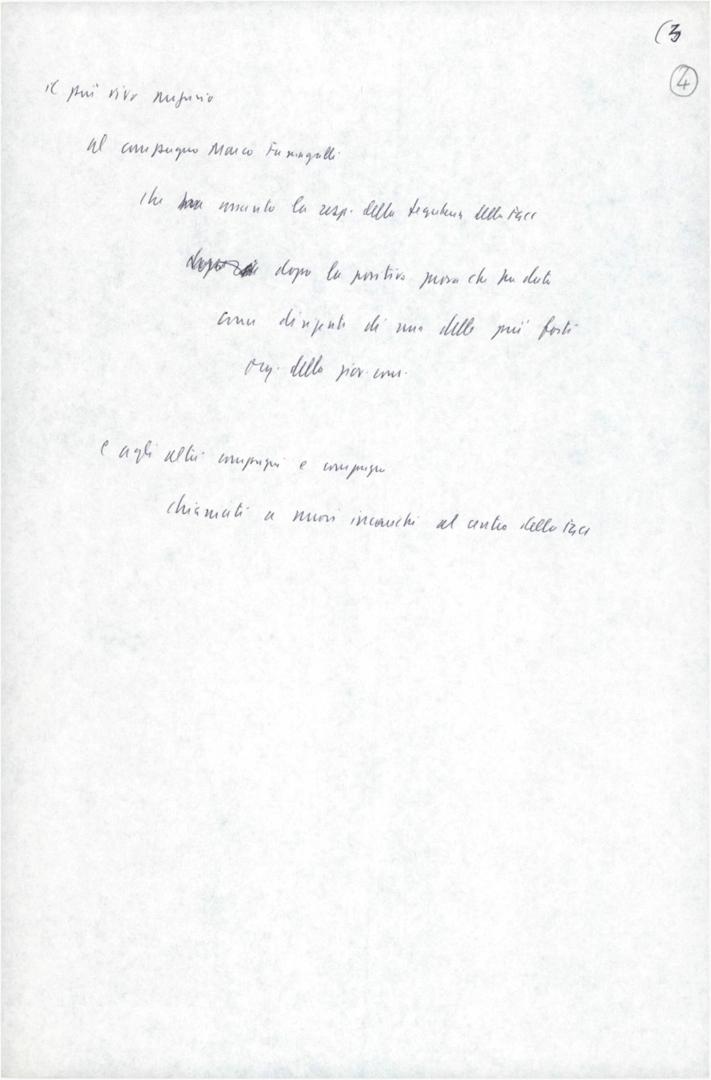 (3
4
il più vivo augurio
al compagno Marco Fumagalli
che ha assunto la resp. della segreteria della FGCI
dopo la positiva prova che ha dato
come dirigente di una delle più forti
org. della giov. com.
e agli altri compagni e compagne
chiamati a nuovi incarichi al centro della FGCI